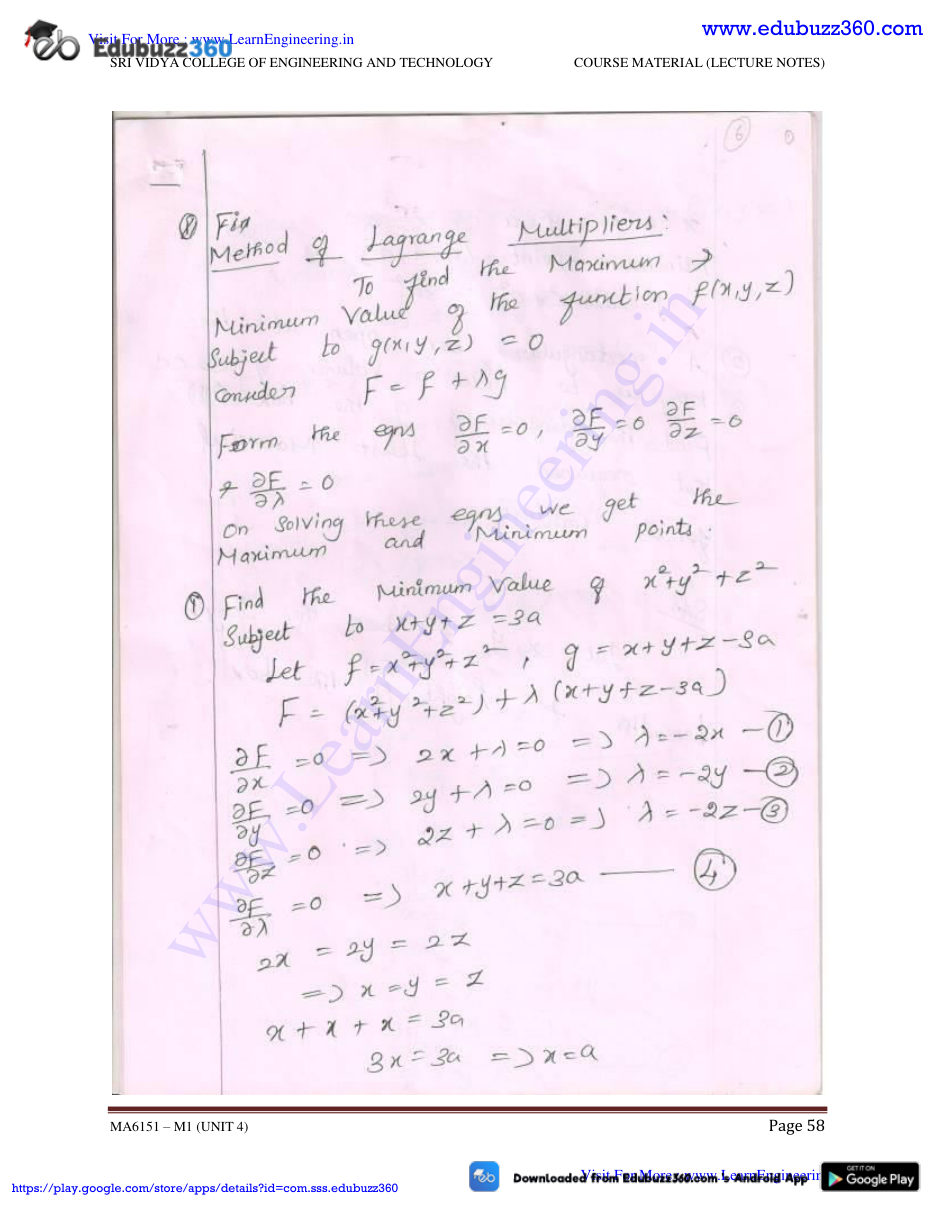 www.edubuzz360.com
Visit For More : www.LearnEngineering.in
Edubuzz360
SRI VIDYA COLLEGE OF ENGINEERING AND TECHNOLOGY COURSE MATERIAL (LECTURE NOTES)
6
8 Fin
Method of Lagrange Multipliers:
To find the Maximum &
Minimum Value of the function f(x,y,z)
Subject to g(x,y,z) = 0
Consider F = f + λg
Form the eqns ∂F/∂x = 0, ∂F/∂y = 0 ∂F/∂z = 0
& ∂F/∂λ = 0
On Solving these eqns we get the
Maximum and Minimum points.
① Find the Minimum Value of x²+y²+z²
Subject to x+y+z = 3a
Let f = x²+y²+z², g = x+y+z-3a
F = (x²+y²+z²) + λ (x+y+z-3a)
∂F/∂x = 0 => 2x + λ = 0 => λ = -2x — ①
∂F/∂y = 0 => 2y + λ = 0 => λ = -2y — ②
∂F/∂z = 0 => 2z + λ = 0 => λ = -2z — ③
∂F/∂λ = 0 => x+y+z = 3a — ④
2x = 2y = 2z
=> x = y = z
x + x + x = 3a
3x = 3a => x = a
www.LearnEngineering.in
MA6151 – M1 (UNIT 4) Page 58
https://play.google.com/store/apps/details?id=com.sss.edubuzz360
Downloaded from EduBuzz360.com 's Android App
Visit For More : www.LearnEngineerin
GET IT ON
Google Play